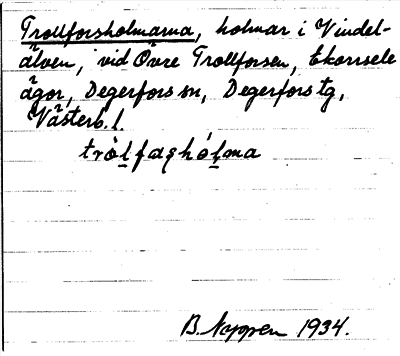 Trollforsholmarna, holmar i Vindel-
älven, vid Övre Trollforsen, Ekorrsele
ägor, Degerfors sn, Degerfors tg,
Västerb. l.
tròlfaʂhólma
B. Nyppen 1934.